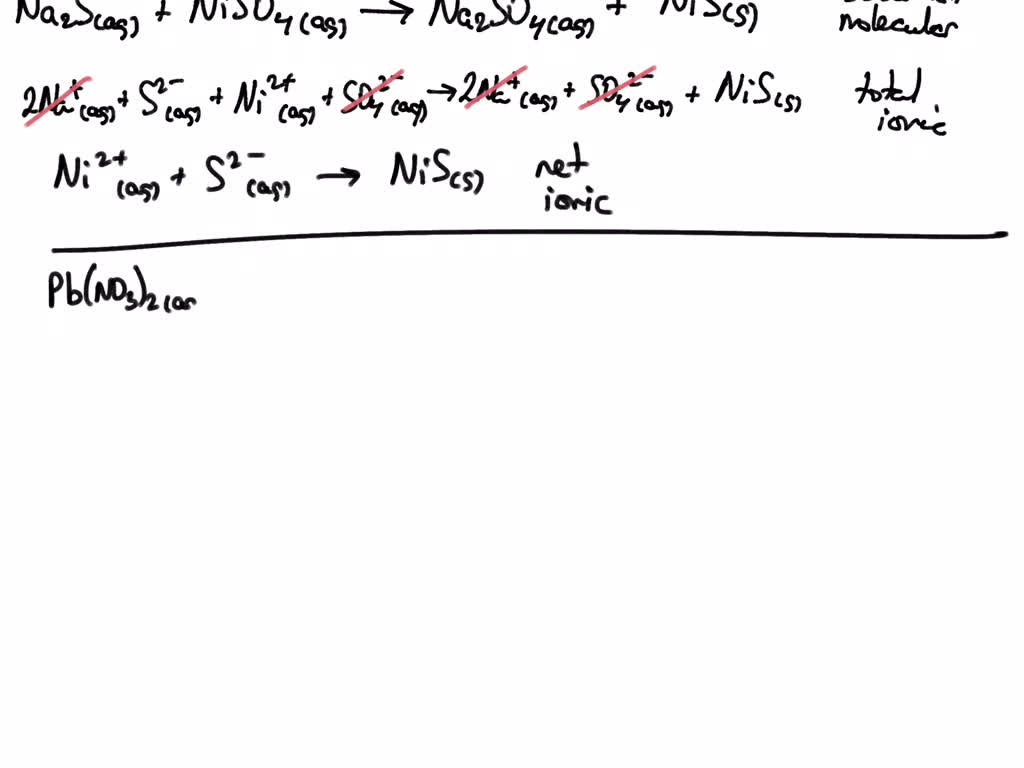 Na₂S(aq) + NiSO₄(aq) → Na₂SO₄(aq) + NiS(s) molecular
2Na⁺(aq) + S²⁻(aq) + Ni²⁺(aq) + SO₄²⁻(aq) → 2Na⁺(aq) + SO₄²⁻(aq) + NiS(s) total ionic
Ni²⁺(aq) + S²⁻(aq) → NiS(s) net ionic
Pb(NO₃)₂(a